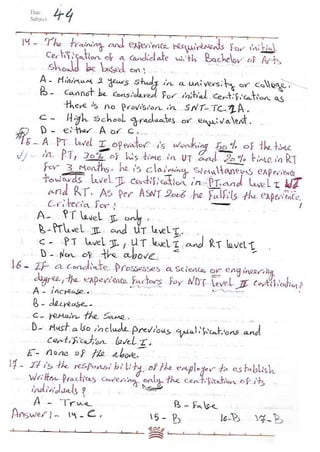 Date:
Subject:
44
14- The training and experience requirements for initial
certification of a candidate with Bachelor of Arts
should be based on:
A- Minimum 2 years study in a university or college.
B- Cannot be considered for initial certification as
there is no provision in SNT-TC-1A.
C- High School graduates or equivalent.
D- either A or C.
15- A PT level I operator is working 50% of the time
in PT, 30% of his time in UT and 20% time in RT
for 3 Months. he is claiming simultaneous experience
towards level II certification in PT and level I UT
and RT. As per ASNT 2006 he fulfils the experience
Criteria for:
A- PT level II only.
B- PT level II and UT level I.
C- PT level II, UT level I and RT level I
D- Non of the above.
16- If a candidate Prossesses a science or engineering
degree, the experience factors for NDT level II certification?
A- increase.
B- decrease.
C- remain the same.
D- Must also include previous qualifications and
certification level I.
E- none of the above.
17- It is the responsibility of the employer to establish
written Practices covering only the certification of its
individuals?
A- True
B- False
Answer:- 14-C.
15-B
16-B
17-B